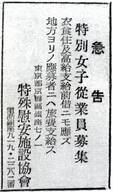 急告
特別女子従業員募集
衣食住及高給支給前借ニモ應ズ
地方ヨリノ應募者ニハ旅費支給ス
東京都京橋區銀座七ノ一
特殊慰安施設協會
電話銀座九一九・二二八二番